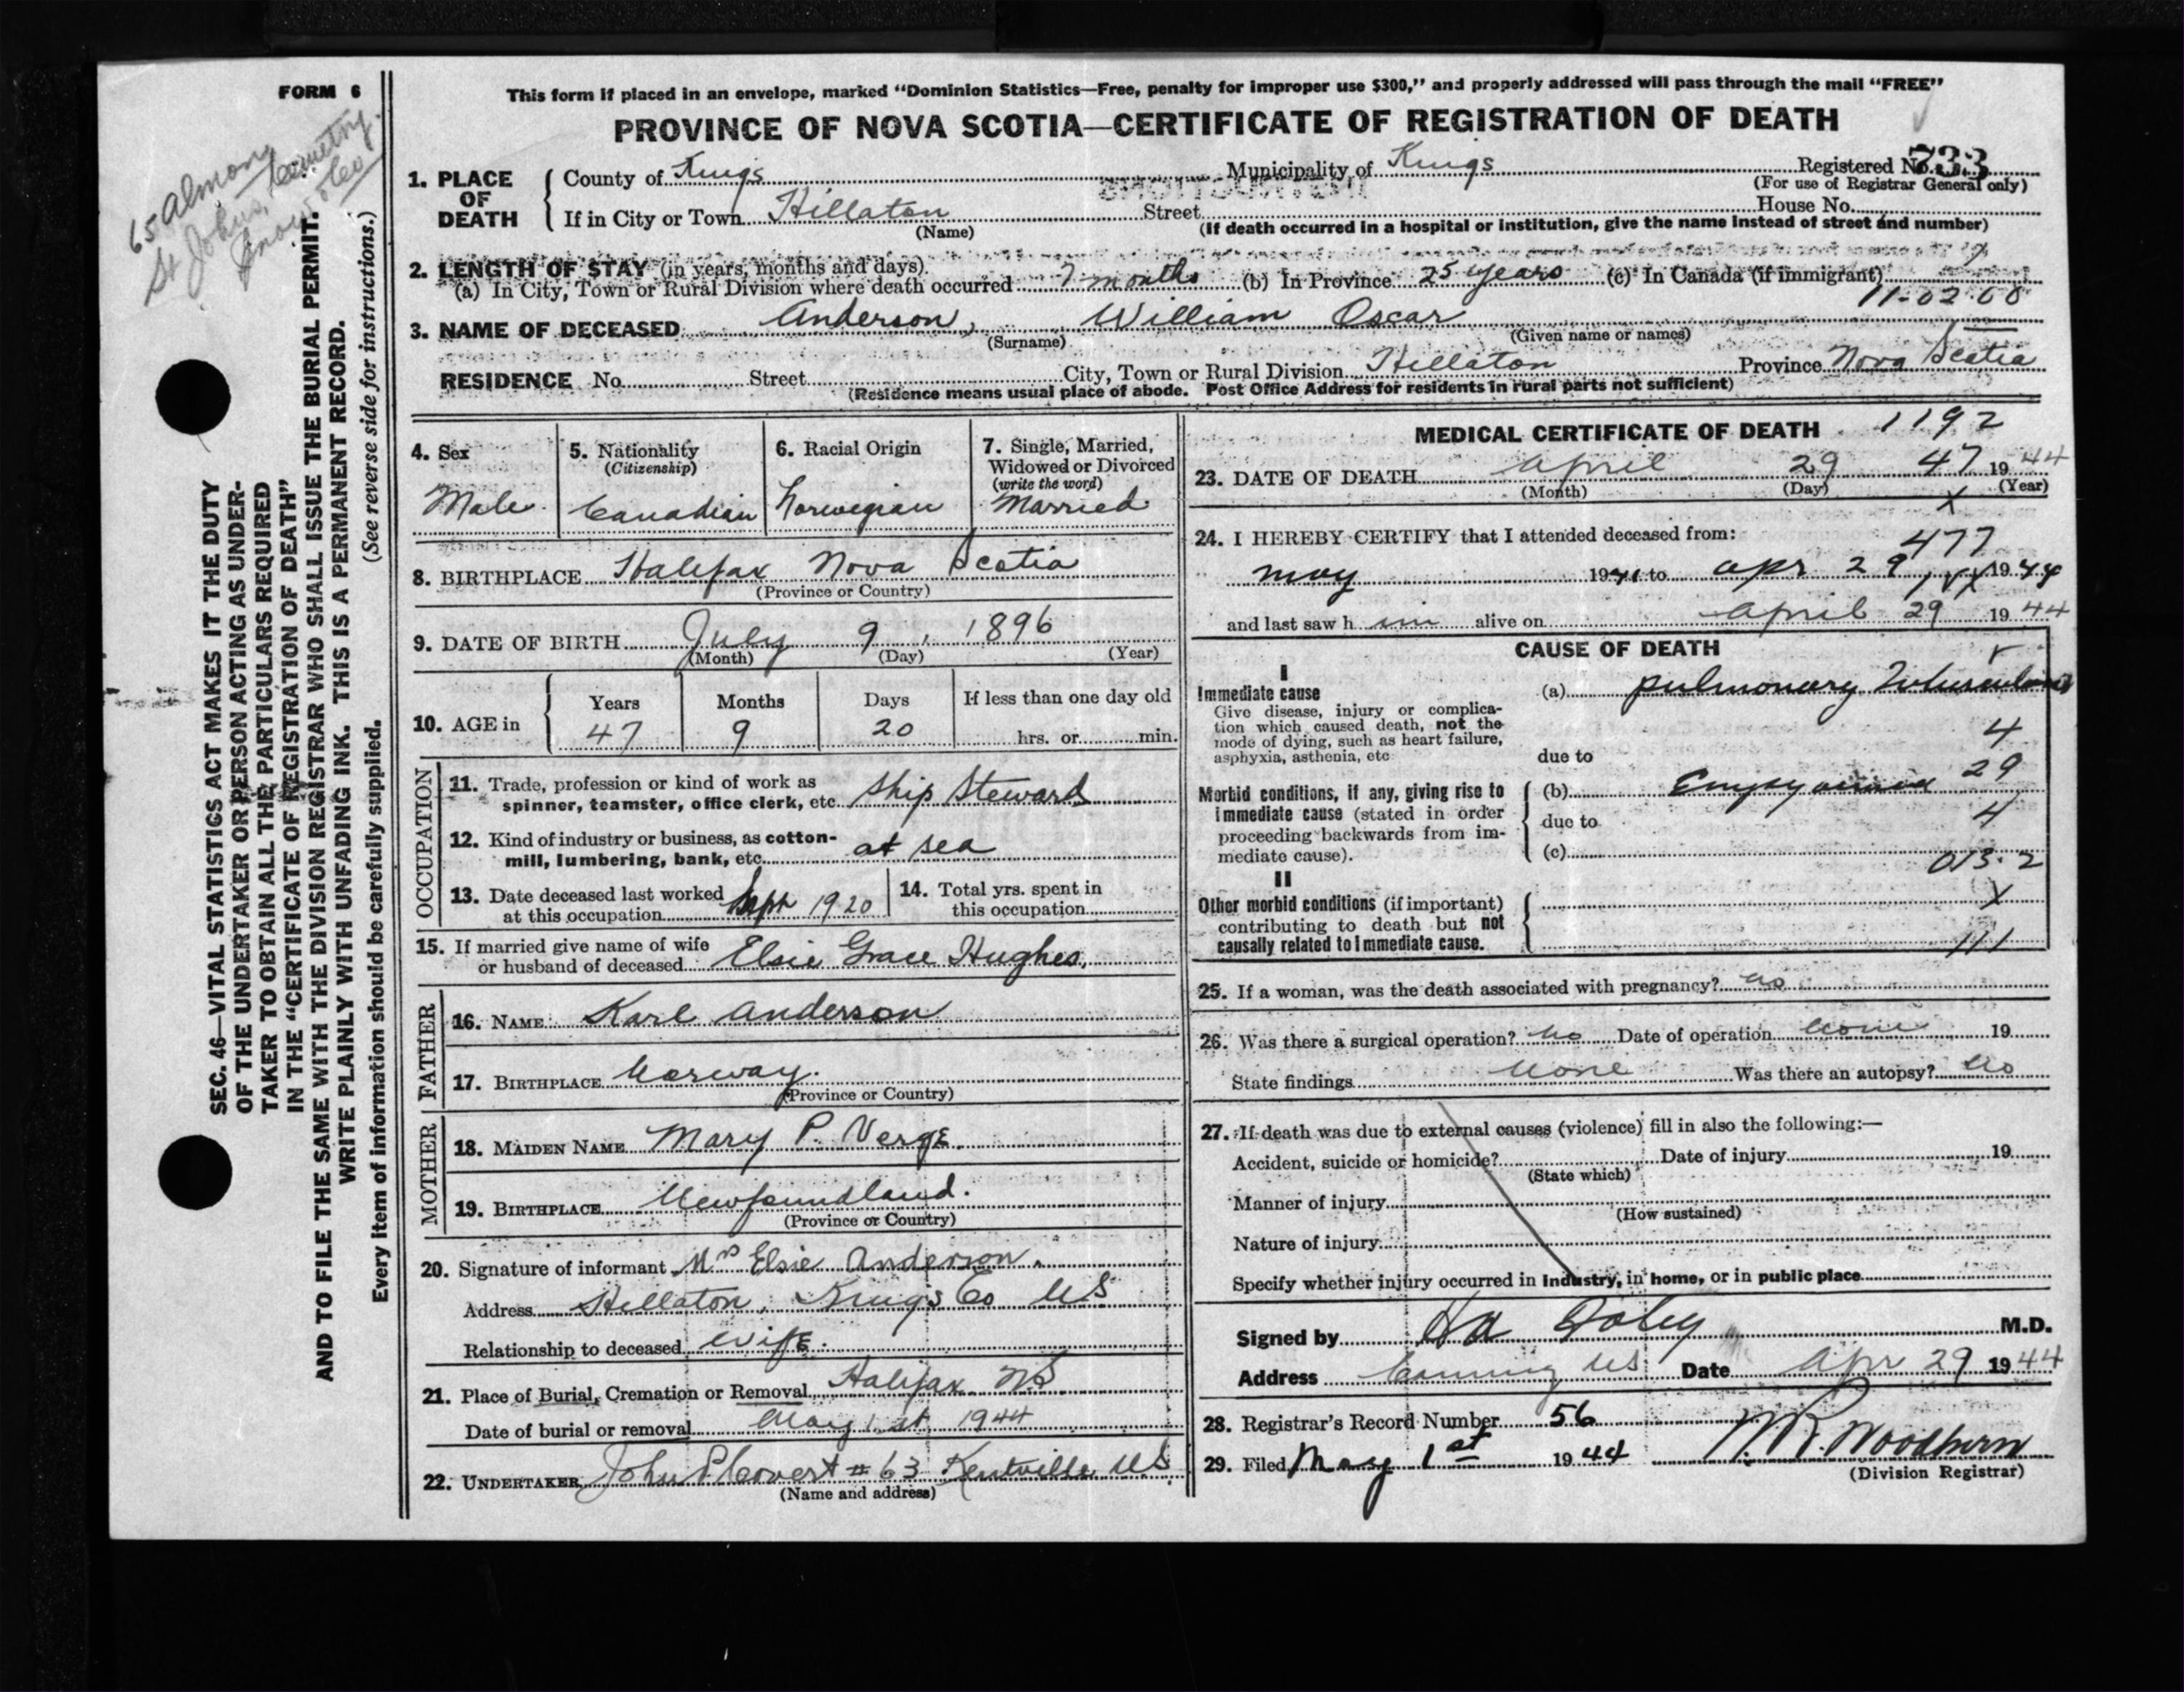 FORM 6
This form if placed in an envelope, marked “Dominion Statistics—Free, penalty for improper use $300,” and properly addressed will pass through the mail “FREE”
PROVINCE OF NOVA SCOTIA—CERTIFICATE OF REGISTRATION OF DEATH
65 Almon
St Johns Cemetry.
SEC. 46—VITAL STATISTICS ACT MAKES IT THE DUTY
OF THE UNDERTAKER OR PERSON ACTING AS UNDER-
TAKER TO OBTAIN ALL THE PARTICULARS REQUIRED
IN THE “CERTIFICATE OF REGISTRATION OF DEATH”
AND TO FILE THE SAME WITH THE DIVISION REGISTRAR WHO SHALL ISSUE THE BURIAL PERMIT.
WRITE PLAINLY WITH UNFADING INK. THIS IS A PERMANENT RECORD.
Every item of information should be carefully supplied. (See reverse side for instructions.)
1. PLACE OF DEATH County of Kings Municipality of Kings Registered No. 733
(For use of Registrar General only)
If in City or Town Hillaton Street House No.
(Name) (If death occurred in a hospital or institution, give the name instead of street and number)
2. LENGTH OF STAY (in years, months and days).
(a) In City, Town or Rural Division where death occurred 7 months (b) In Province 25 years (c) In Canada (if immigrant)
11-02-08
3. NAME OF DECEASED Anderson, William Oscar
(Surname) (Given name or names)
RESIDENCE No. Street City, Town or Rural Division Hillaton Province Nova Scotia
(Residence means usual place of abode. Post Office Address for residents in rural parts not sufficient)
4. Sex
Male
5. Nationality
(Citizenship)
Canadian
6. Racial Origin
Norwegian
7. Single, Married,
Widowed or Divorced
(write the word)
Married
8. BIRTHPLACE Halifax Nova Scotia
(Province or Country)
9. DATE OF BIRTH July 9, 1896
(Month) (Day) (Year)
10. AGE in Years Months Days If less than one day old
47 9 20 hrs. or min.
OCCUPATION
11. Trade, profession or kind of work as
spinner, teamster, office clerk, etc. Ship Steward
12. Kind of industry or business, as cotton-
mill, lumbering, bank, etc. at sea
13. Date deceased last worked
at this occupation Sept 1920
14. Total yrs. spent in
this occupation
15. If married give name of wife
or husband of deceased Elsie Grace Hughes.
FATHER
16. NAME Karl Anderson
17. BIRTHPLACE Norway.
(Province or Country)
MOTHER
18. MAIDEN NAME Mary P. Verge.
19. BIRTHPLACE Newfoundland.
(Province or Country)
20. Signature of informant Mrs Elsie Anderson.
Address Hillaton, Kings Co NS
Relationship to deceased wife.
21. Place of Burial, Cremation or Removal Halifax NS
Date of burial or removal May 1st 1944
22. UNDERTAKER John P Covert #63 Kentville NS
(Name and address)
MEDICAL CERTIFICATE OF DEATH 1192
23. DATE OF DEATH April 29 47 1944
(Month) (Day) (Year)
X
24. I HEREBY CERTIFY that I attended deceased from:
477
May 1941 to Apr 29 1944
and last saw him alive on April 29 1944
CAUSE OF DEATH
I
Immediate cause
Give disease, injury or complica-
tion which caused death, not the
mode of dying, such as heart failure,
asphyxia, asthenia, etc
(a) pulmonary Tuberculosis
4
due to
29
Morbid conditions, if any, giving rise to
immediate cause (stated in order
proceeding backwards from im-
mediate cause).
(b) Empyaema
due to 4
(c)
013.2
II
Other morbid conditions (if important)
contributing to death but not
causally related to immediate cause.
X
111
25. If a woman, was the death associated with pregnancy? no
26. Was there a surgical operation? no Date of operation none 19
State findings none Was there an autopsy? no
27. If death was due to external causes (violence) fill in also the following:—
Accident, suicide or homicide? Date of injury 19
(State which)
Manner of injury
(How sustained)
Nature of injury
Specify whether injury occurred in industry, in home, or in public place
Signed by M.D.
Address Canning NS Date Apr 29 1944
28. Registrar's Record Number 56
29. Filed May 1st 1944 Woodburn
(Division Registrar)